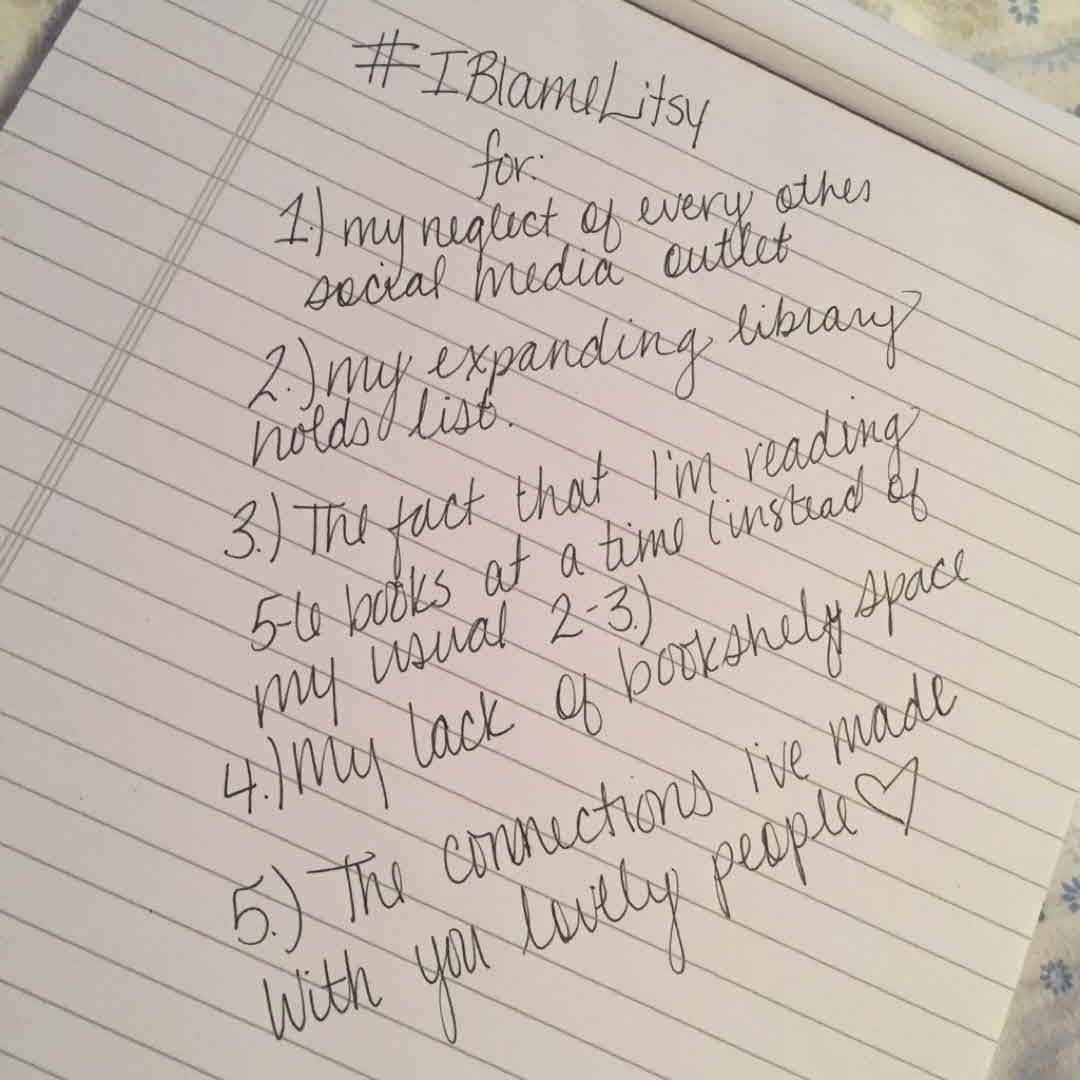 #IBlameLitsy
for:
1.) my neglect of every other
social media outlet
2.) my expanding library
holds list.
3.) The fact that I'm reading
5-6 books at a time (instead of
my usual 2-3.)
4.) My lack of bookshelf space
5.) The connections i've made
with you lovely people♡